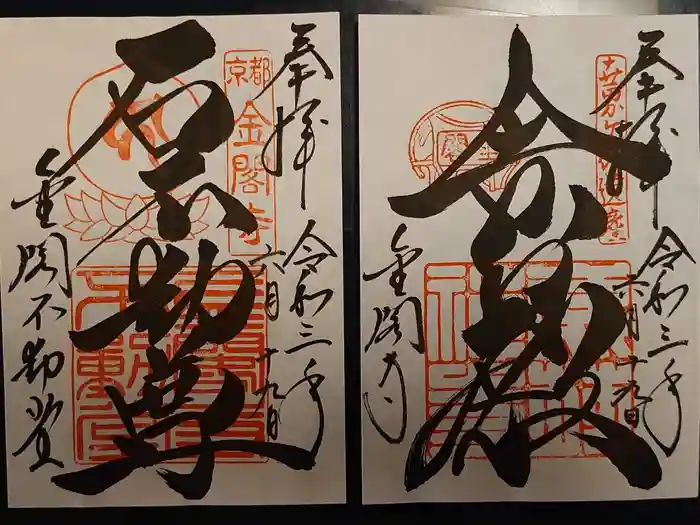 奉拝
令和三年
六月十九日
舎利殿
金閣寺
奉拝
令和三年
六月十九日
京都
金閣寺
石不動尊
金閣不動堂